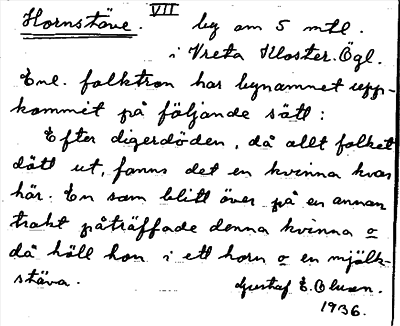 Hornstäve. VII by om 5 mtl.
i Vreta Kloster. Ögl.
Enl. folktron har bynamnet upp-
kommit på följande sätt:
Efter digerdöden, då allt folket
dött ut, fanns det en kvinna kvar
här. En som blitt över på en annan
trakt påträffade denna kvinna o
då höll hon i ett horn o en mjölk-
stäva. Gustaf E. Olsson.
1936.